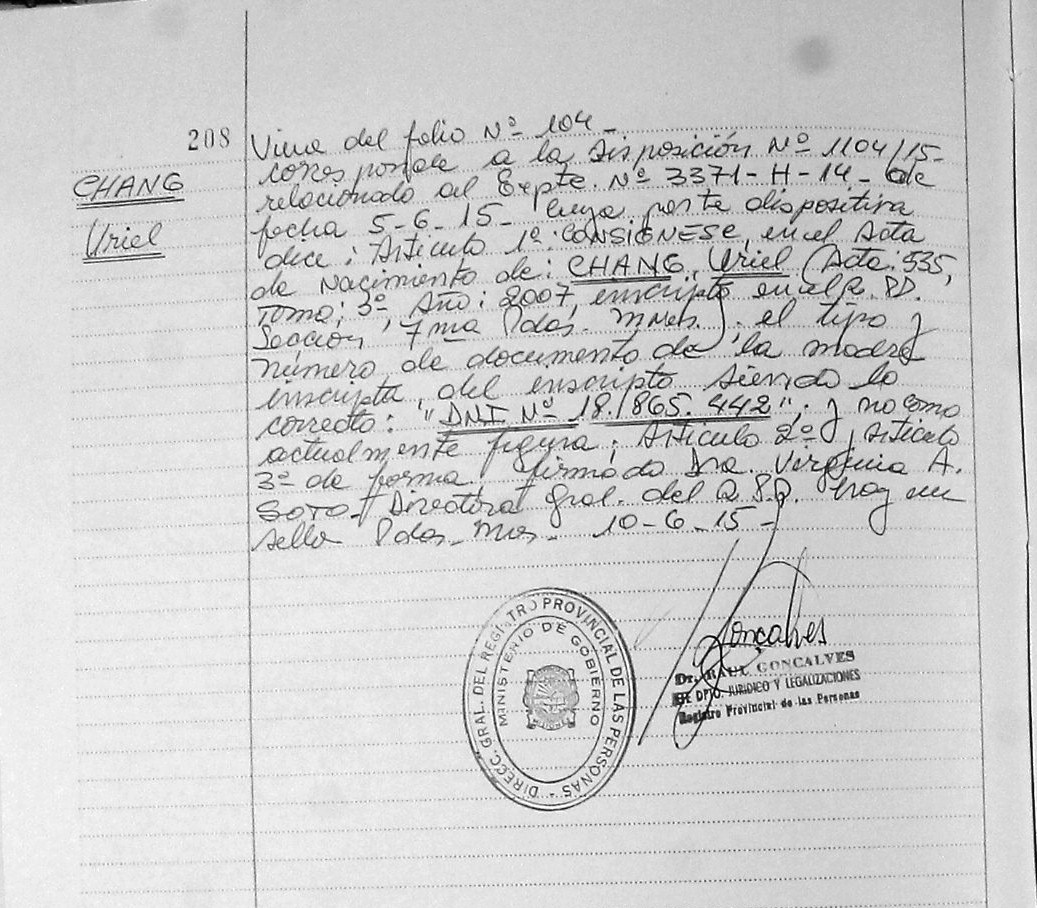 208
CHANG
Uriel
Viene del folio Nº 104-
corresponde a la Disposición Nº 1104/15-
relacionado al Expte. Nº 3371-H-14- de
fecha 5-6-15- cuya parte dispositiva
dice: Articulo 1º: CONSIGNESE, en el Acta
de Nacimiento de: CHANG, Uriel (Acta: 535,
Tomo: 3º Año: 2007, inscripto en el R.P.P.
Sección 7ma Pdas. ). el tipo y
número de documento de la madre
inscripta del inscripto siendo lo
correcto: "DNI Nº 18./865.442"; y no como
actualmente figura; Articulo 2º, Articulo
3º de forma. firmado Dra. Virginia A.
SOTO- Directora Gral. del R.P.P. hay un
sello Pdas- Mnes- 10-6-15-
DIRECC. GRAL. DEL REGISTRO PROVINCIAL DE LAS PERSONAS -
MINISTERIO DE GOBIERNO
Goncalves
Dr. RAUL GONCALVES
JEFE DPTO. JURIDICO Y LEGALIZACIONES
Registro Provincial de las Personas